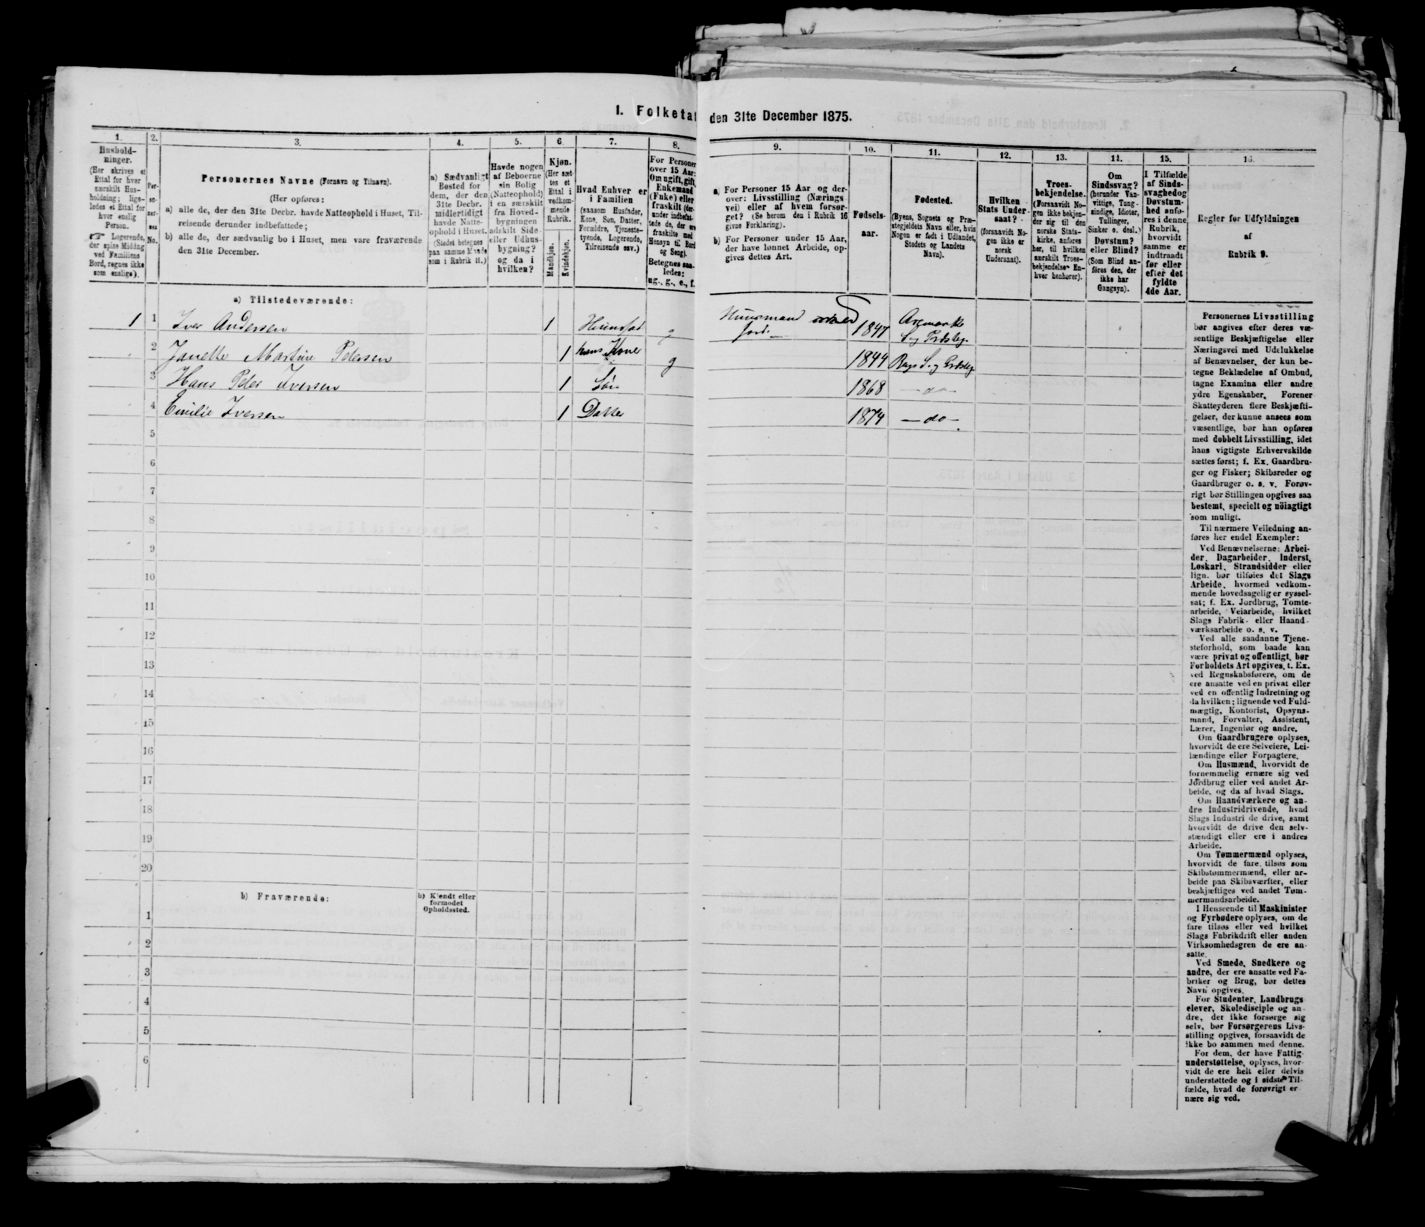 I. Folketæl
den 31te December 1875.
1.
2.
3.
4.
5.
6
7.
8.
9.
10.
11.
12.
13.
14.
15.
16.
Hushold-
ninger.
(Her skrives et
Ettal for hver
særskilt Hus-
holdning; lige-
ledes et Ettal for
hver enslig
Person.
☞ Logerende,
der spise Middag
ved Familiens
Bord, regnes ikke
som enslige).
Per-
so-
ner-
nes
No.
Personernes Navne (Fornavn og Tilnavn).
(Her opføres:
a) alle de, der den 31te Decbr. havde Natteophold i Huset, Til-
reisende derunder indbefattede;
b) alle de, der sædvanlig bo i Huset, men vare fraværende
den 31te December.
a) Sædvanligt
Bosted for
dem, der den
31te Decbr.
midlertidigt
havde Natte-
ophold i Huset.
(Stedet betegnes
paa samme Maade
som i Rubrik 11.)
Havde nogen
af Beboerne
sin Bolig
(Natteophold)
i en særskilt
fra Hoved-
bygningen
adskilt Side-
eller Udhus-
bygning?
og da i
hvilken?
Kjøn.
(Her sæt-
tes et
Ettal i
vedkom-
mende
Rubrik.
Mandkjøn.
Kvindekjøn.
Hvad Enhver er
i Familien
(saasom Husfader,
Kone, Søn, Datter,
Forældre, Tjeneste-
tyende, Logerende,
Tilreisende osv.)
For Personer
over 15 Aar:
Om ugift, gift,
Enkemand
(Enke) eller
fraskilt (der-
under indbefat-
tede de, der ere
fraskilte med
Hensyn til Bord
og Seng).
Betegnes saa-
ledes:
ug., g., e., f.
a) For Personer 15 Aar og der-
over: Livsstilling (Nærings
vei) eller af hvem forsør-
get? (Se herom den i Rubrik 16
givne Forklaring).
b) For Personer under 15 Aar,
der have lønnet Arbeide, op-
gives dettes Art.
Fødsels-
aar.
Fødested.
(Byens, Sognets og Præ-
stegjeldets Navn eller, hvis
Nogen er født i Udlandet,
Stedets og Landets
Navn).
Hvilken
Stats Under-
saat?
(forsaavidt No-
gen ikke er
norsk
Undersaat).
Troes-
bekjendelse.
(Forsaavidt No-
gen ikke bekjen-
der sig til den
norske Stats-
kirke, anføres
her, til hvilken
særskilt Troes-
bekjendelse En-
hver henhører).
Om
Sindssvag?
(herunder Van-
vittige, Tung-
sindige, Idioter,
Tullinger,
Sinker o. desl.)
Døvstum?
eller Blind?
(Som Blind an-
føres den, der
ikke har
Gangsyn).
I Tilfælde
af Sinds-
svaghed og
Døvstum-
hed anfø-
res i denne
Rubrik,
hvorvidt
samme er
indtraadt
før eller
efter det
fyldte
4de Aar.
Regler for Udfyldningen
af
Rubrik 9.
a) Tilstedeværende:
1 1 Iver Andersen 1 Huusfad g Huusmand jord 1847 Aremarks
2 Janette Martine Petersen 1 hans Kone g 1844
3 Hans Peter Iversen 1 Søn 1868 — do —
4 Emilie Iversen 1 Datter 1874 — do —
5
6
7
8
9
10
11
12
13
14
15
16
17
18
19
20
b) Fraværende:
b) Kjendt eller
formodet
Opholdssted.
1
2
3
4
5
6
Personernes Livsstilling
bør angives efter deres væ-
sentlige Beskjæftigelse eller
Næringsvei med Udelukkelse
af Benævnelser, der kun be-
tegne Beklædelse af Ombud,
tagne Examina eller andre
ydre Egenskaber. Forener
Skatteyderen flere Beskjæfti-
gelser, der kunne ansees som
væsentlige, bør han opføres
med dobbelt Livsstilling, idet
hans vigtigste Erhvervskilde
sættes først; f. Ex. Gaardbru-
ger og Fisker; Skibsreder og
Gaardbruger o. s. v. Forøv-
rigt bør Stillingen opgives saa
bestemt, specielt og nöiagtigt
som muligt.
Til nærmere Veiledning an-
føres her endel Exempler:
Ved Benævnelserne: Arbei-
der, Dagarbeider, Inderst,
Løskarl, Strandsidder eller
lign. bør tilføies det Slags
Arbeide, hvormed vedkom-
mende hovedsagelig er syssel-
sat; f. Ex. Jordbrug, Tomte-
arbeide, Veiarbeide, hvilket
Slags Fabrik- eller Haand-
værksarbeide o. s. v.
Ved alle saadanne Tjene-
steforhold, som baade kan
være privat og offentligt, bør
Forholdets Art opgives, t. Ex.
ved Regnskabsførere, om de
ere ansatte ved en privat eller
ved en offentlig Indretning og
da hvilken; lignende ved Fuld-
mægtig, Kontorist, Opsyns-
mand, Forvalter, Assistent,
Lærer, Ingeniør og andre.
Om Gaardbrugere oplyses,
hvorvidt de ere Selveiere, Lei-
lændinge eller Forpagtere.
Om Husmænd, hvorvidt de
fornemmelig ernære sig ved
Jordbrug eller ved andet Ar-
beide, og da af hvad Slags.
Om Haandværkere og an-
dre Industridrivende, hvad
Slags Industri de drive, samt
hvorvidt de drive den selv-
stændigt eller ere i andres
Arbeide.
Om Tømmermænd oplyses,
hvorvidt de fare tilsøs som
Skibstømmermænd, eller ar-
beide paa Skibsværfter, eller
beskjæftiges ved andet Tøm-
mermandsarbeide.
I Henseende til Maskinister
og Fyrbødere oplyses, om de
fare tilsøs eller ved hvilket
Slags Fabrikdrift eller anden
Virksomhedsgren de ere an-
satte.
Ved Smede, Snedkere og
andre, der ere ansatte ved Fa-
briker og Brug, bør dettes
Navn opgives.
For Studenter, Landbrugs
elever, Skoledisciple og an-
dre, der ikke forsørge sig
selv, bør Forsørgerens Livs-
stilling opgives, forsaavidt de
ikke bo sammen med denne.
For dem, der have Fattig
understøttelse, oplyses, hvor-
vidt de ere helt eller delvis
understøttede og i sidste Til-
fælde, hvad de forøvrigt er
nære sig ved.